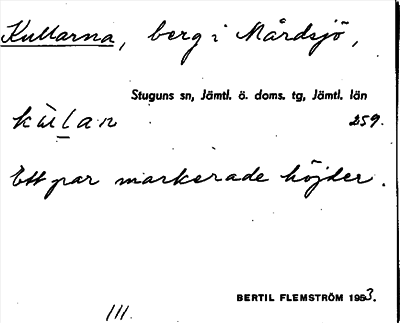 Kullarna, berg i Mårdsjö,
Stuguns sn, Jämtl. ö. doms. tg, Jämtl. län
259.
Ett par markerade höjder.
BERTIL FLEMSTRÖM 1953.
III.